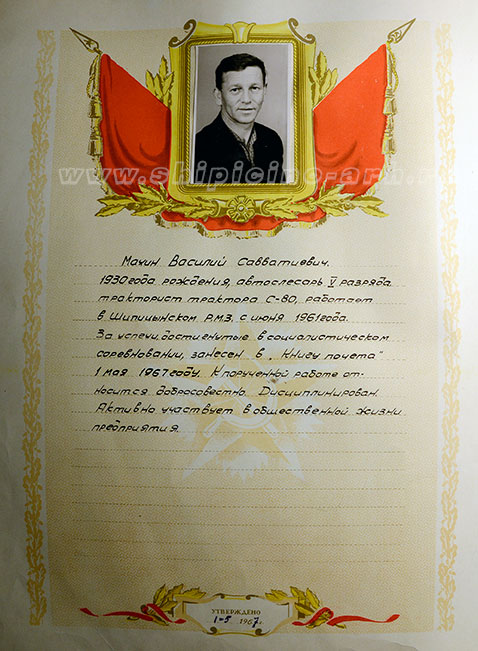 www.shipicino-arh.r
Махин Василий Савватиевич.
1930 года рождения, автослесарь V разряда
тракторист трактора С-80, работает
в Шипицынском Р.М.З. с июня 1961 года.
За успехи, достигнутые в социалистическом
соревновании, занесен в „Книгу почета"
1 мая 1967 году. К порученной работе от-
носится добросовестно. Дисциплинирован.
Активно участвует в общественной жизни
предприятия.
УТВЕРЖДЕНО
1-5 1967г.